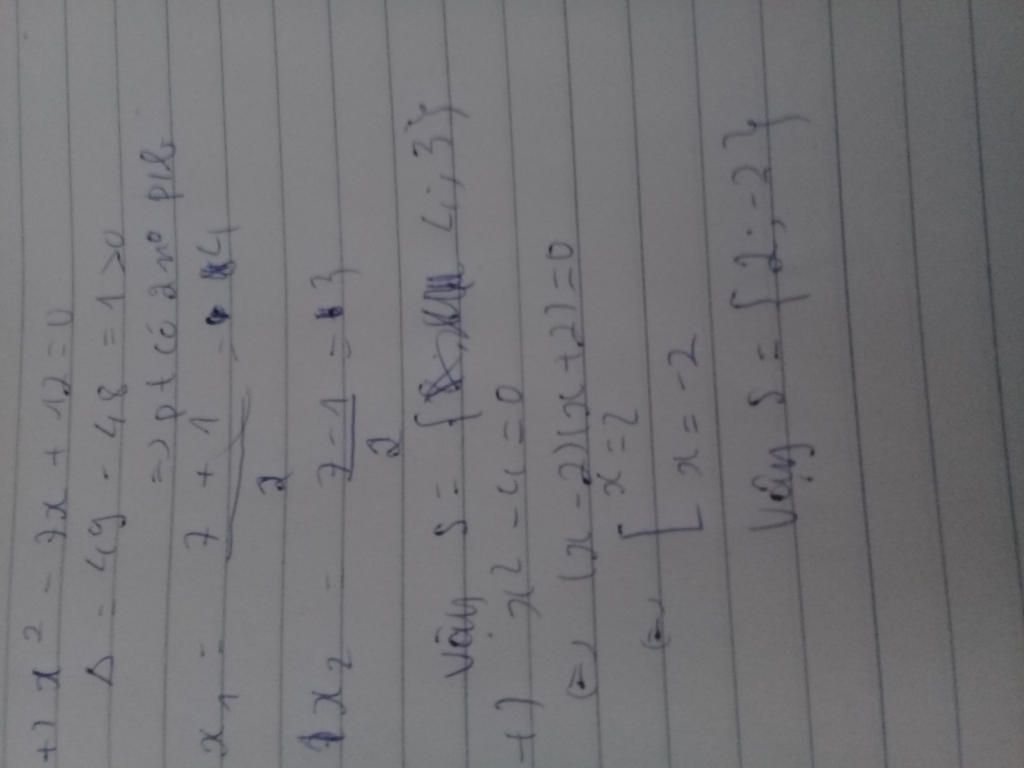 +) x² - 7x + 12 = 0
Δ = 49 - 48 = 1 > 0
=> pt có 2 no pb
x₁ = 7 + 1 = 4
2
x₂ = 7 - 1 = 3
2
Vậy S = { 4; 3 }
+) x² - 4 = 0
<=> (x - 2)(x + 2) = 0
x = 2
<=> [ x = -2
Vậy S = { 2; -2 }